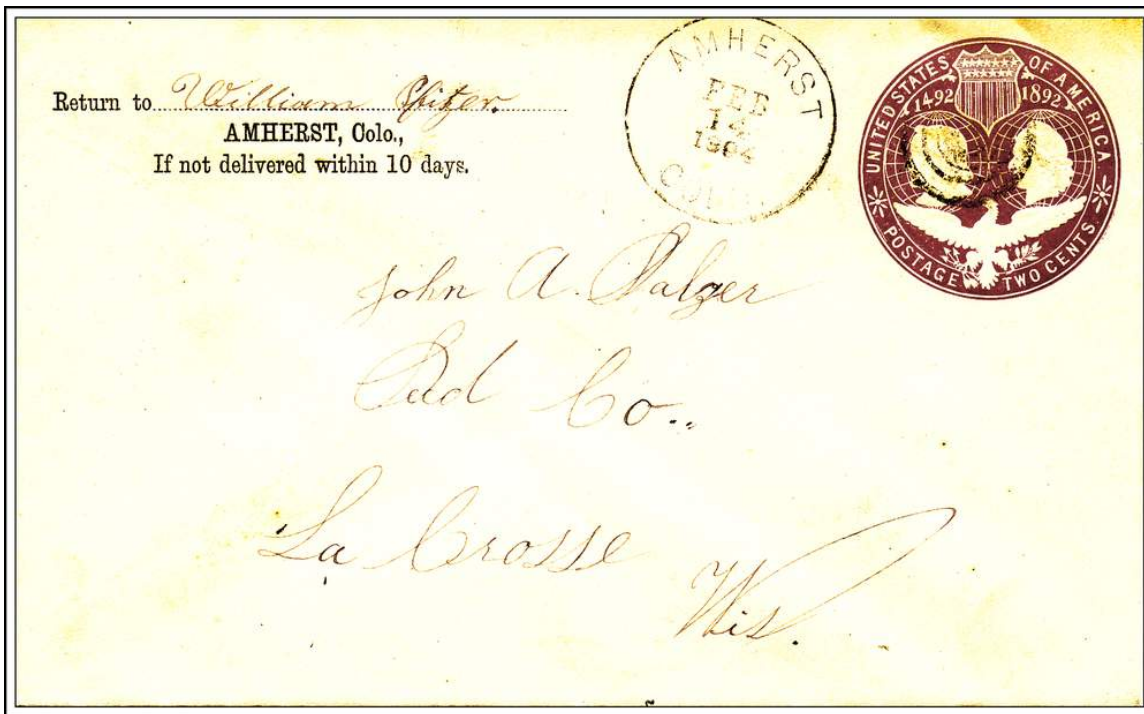 Return to William Pfitzer.
AMHERST, Colo.,
If not delivered within 10 days.
AMHERST
FEB
14
1894
COLO.
UNITED STATES OF AMERICA
1492 1892
POSTAGE TWO CENTS
John A. Salzer
Seed Co..
La Crosse
Wis.